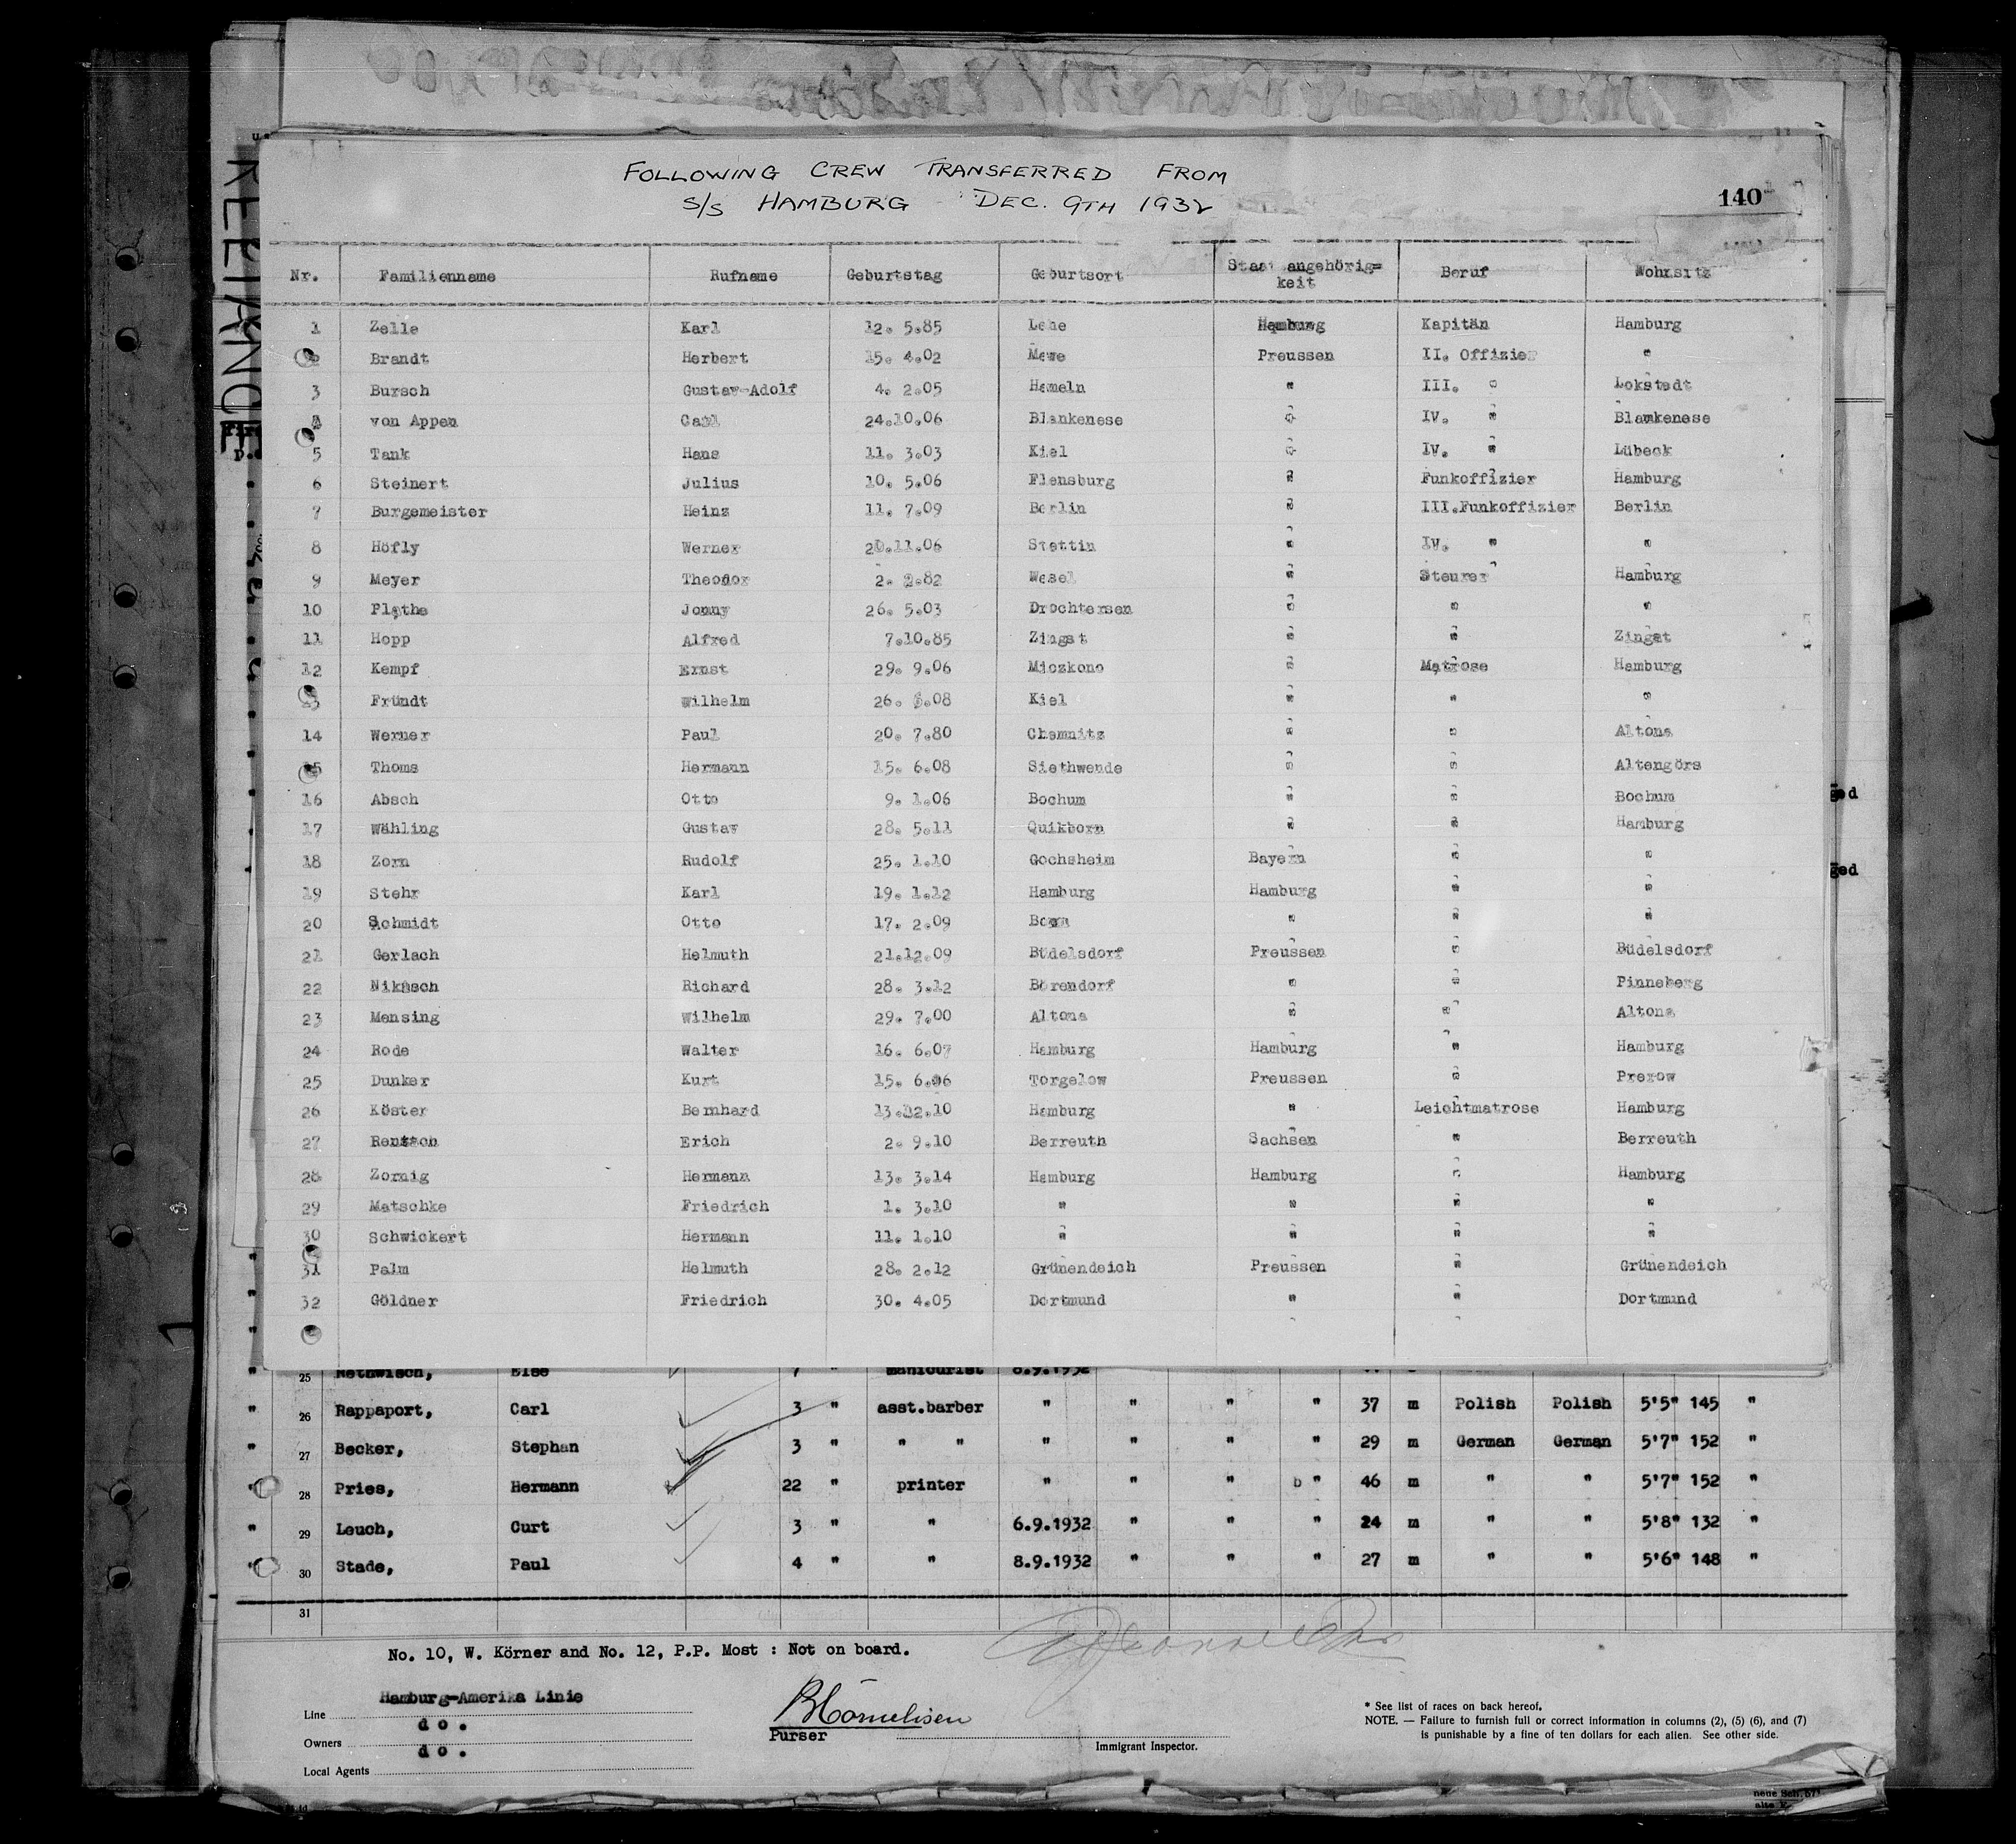 FOLLOWING CREW TRANSFERRED FROM
S/S HAMBURG DEC. 9TH 1932
140
Nr. Familienname Rufname Geburtstag Geburtsort Staatangehörig= Beruf Wohnsitz
keit
1 Zelle Karl 12. 5.85 Lehe Hamburg Kapitän Hamburg
2 Brandt Herbert 15. 4.02 Mewe Preussen II. Offizier "
3 Bursch Gustav-Adolf 4. 2.05 Hameln " III. " Lokstedt
4 von Appen Carl 24.10.06 Blankenese " IV. " Blankenese
5 Tank Hans 11. 3.03 Kiel " IV. " Lübeck
6 Steinert Julius 10. 5.06 Flensburg " Funkoffizier Hamburg
7 Burgemeister Heinz 11. 7.09 Berlin " III.Funkoffizier Berlin
8 Höfly Werner 20.11.06 Stettin " IV. " "
9 Meyer Theodor 2. 2.82 Wesel " Steurer Hamburg
10 Plethe Jonny 26. 5.03 Drochtersen " " "
11 Hopp Alfred 7.10.85 Zingst " " Zingst
12 Kempf Ernst 29. 9.06 Miczkono " Matrose Hamburg
13 Fründt Wilhelm 26. .08 Kiel " " "
14 Werner Paul 20. 7.80 Chemnitz " " Altona
15 Thoms Hermann 15. 6.08 Siethwende " " Altengörs
16 Absch Otto 9. 1.06 Bochum " " Bochum
17 Wähling Gustav 28. 5.11 Quikborn " " Hamburg
18 Zorn Rudolf 25. 1.10 Gochsheim Bayern " "
19 Stehr Karl 19. 1.12 Hamburg Hamburg " "
20 Schmidt Otto 17. 2.09 " " "
21 Gerlach Helmuth 21.12.09 Büdelsdorf Preussen " Büdelsdorf
22 Nikasch Richard 28. 3.12 Börendorf " " Pinneberg
23 Mensing Wilhelm 29. 7.00 Altona " " Altona
24 Rode Walter 16. 6.07 Hamburg Hamburg " Hamburg
25 Dunker Kurt 15. 6.06 Torgelow Preussen " Prerow
26 Köster Bernhard 13.12.10 Hamburg " Leichtmatrose Hamburg
27 Rentsch Erich 2. 9.10 Berreuth Sachsen " Berreuth
28 Zornig Hermann 13. 3.14 Hamburg Hamburg " Hamburg
29 Matschke Friedrich 1. 3.10 " " " "
30 Schwickert Hermann 11. 1.10 " " " "
31 Palm Helmuth 28. 2.12 Grünendeich Preussen " Grünendeich
32 Göldner Friedrich 30. 4.05 Dortmund " " Dortmund
25 Nethwisch, Else 7 " manicurist 8.9.1932
26 Rappaport, Carl 3 " asst.barber " " " " 37 m Polish Polish 5'5" 145 "
27 Becker, Stephan 3 " " " " " " " 29 m German German 5'7" 152 "
28 Pries, Hermann 22 " printer " " " b " 46 m " " 5'7" 152 "
29 Leuch, Curt 3 " " 6.9.1932 " " " 24 m " " 5'8" 132 "
30 Stade, Paul 4 " " 8.9.1932 " " " 27 m " " 5'6" 148 "
31
No. 10, W. Körner and No. 12, P.P. Most : Not on board.
Line Hamburg-Amerika Linie
Owners do.
Local Agents do.
Purser
Immigrant Inspector.
* See list of races on back hereof.
NOTE. — Failure to furnish full or correct information in columns (2), (5) (6), and (7)
is punishable by a fine of ten dollars for each alien. See other side.